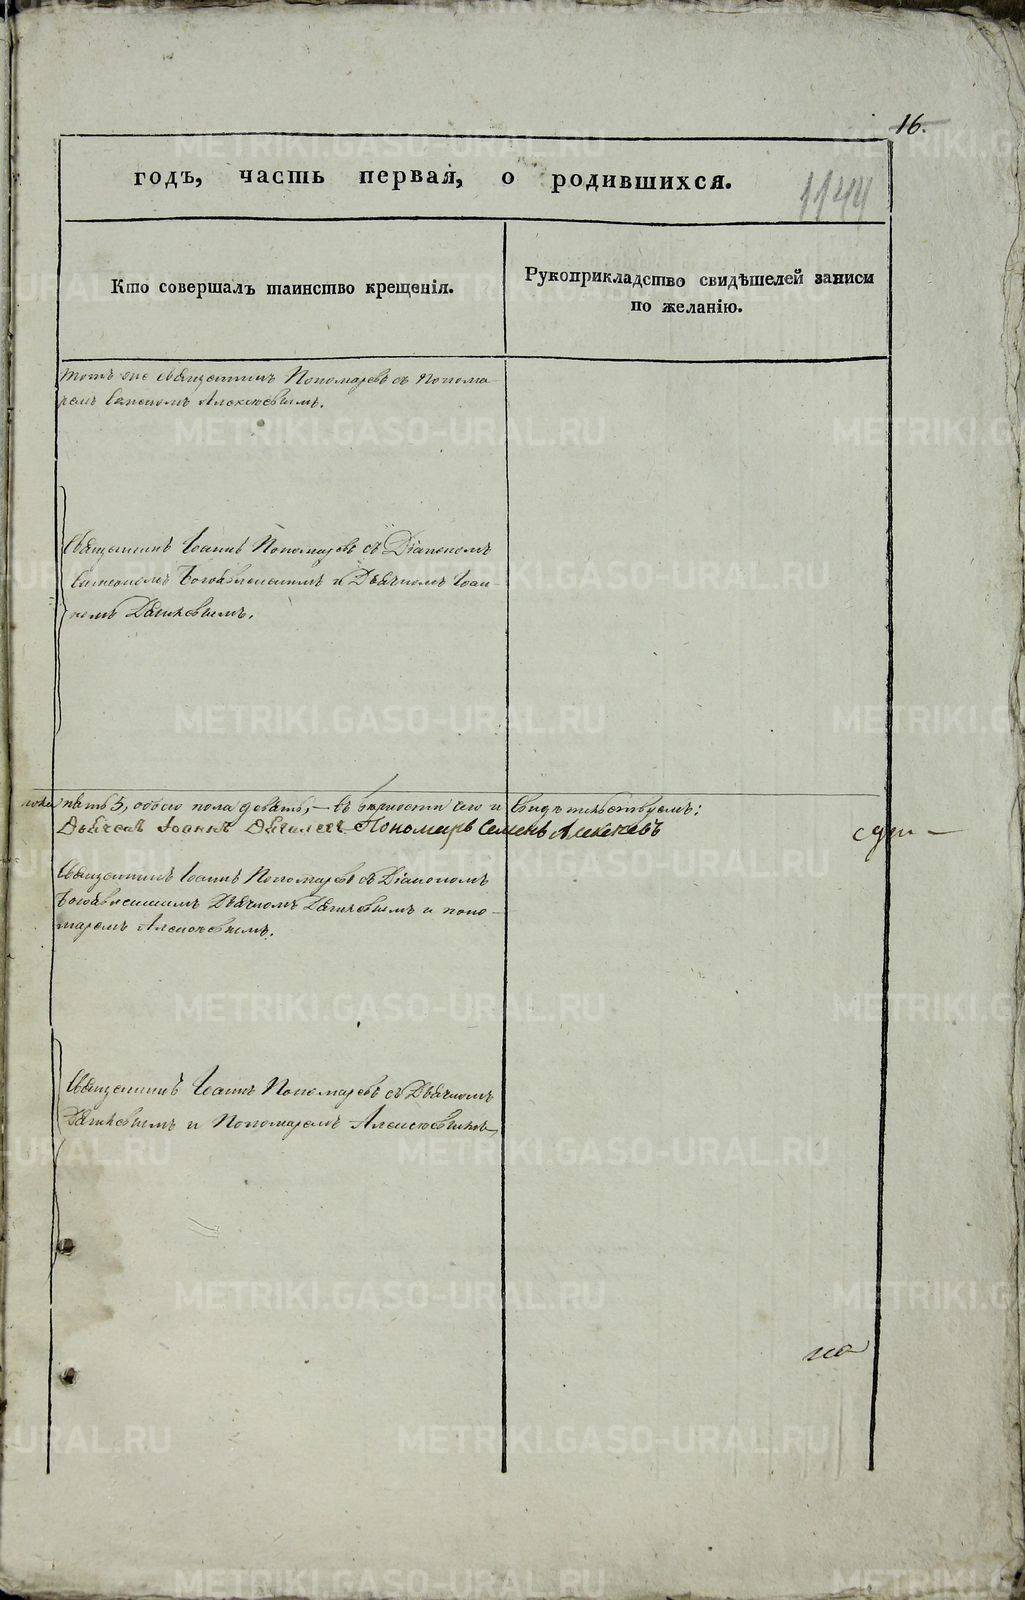 16.
годъ, часть первая, о родившихся.
1144
Кто совершалъ таинство крещенія.
Рукоприкладство свидѣтелей записи
по желанію.
тотъ же священникъ Пономаревъ съ понома-
ремъ Алексѣевымъ.
Священникъ Іоаннъ Пономаревъ съ Діакономъ
Симеономъ Богоявленскимъ и Дьячкомъ Іоан-
номъ
пять 5, обоего пола девять, – въ вѣрности сего и свидѣтельствуемъ:
Дьячекъ Іоаннъ Пономарь Семенъ Алексѣевъ
Священникъ Іоаннъ Пономаревъ съ Діакономъ
Богоявленскимъ Дьячкомъ и поно-
маремъ Алексѣевымъ.
Священникъ Іоаннъ Пономаревъ съ Дьячкомъ
и Пономаремъ Алексѣевымъ
METRIKI.GASO-URAL.RU